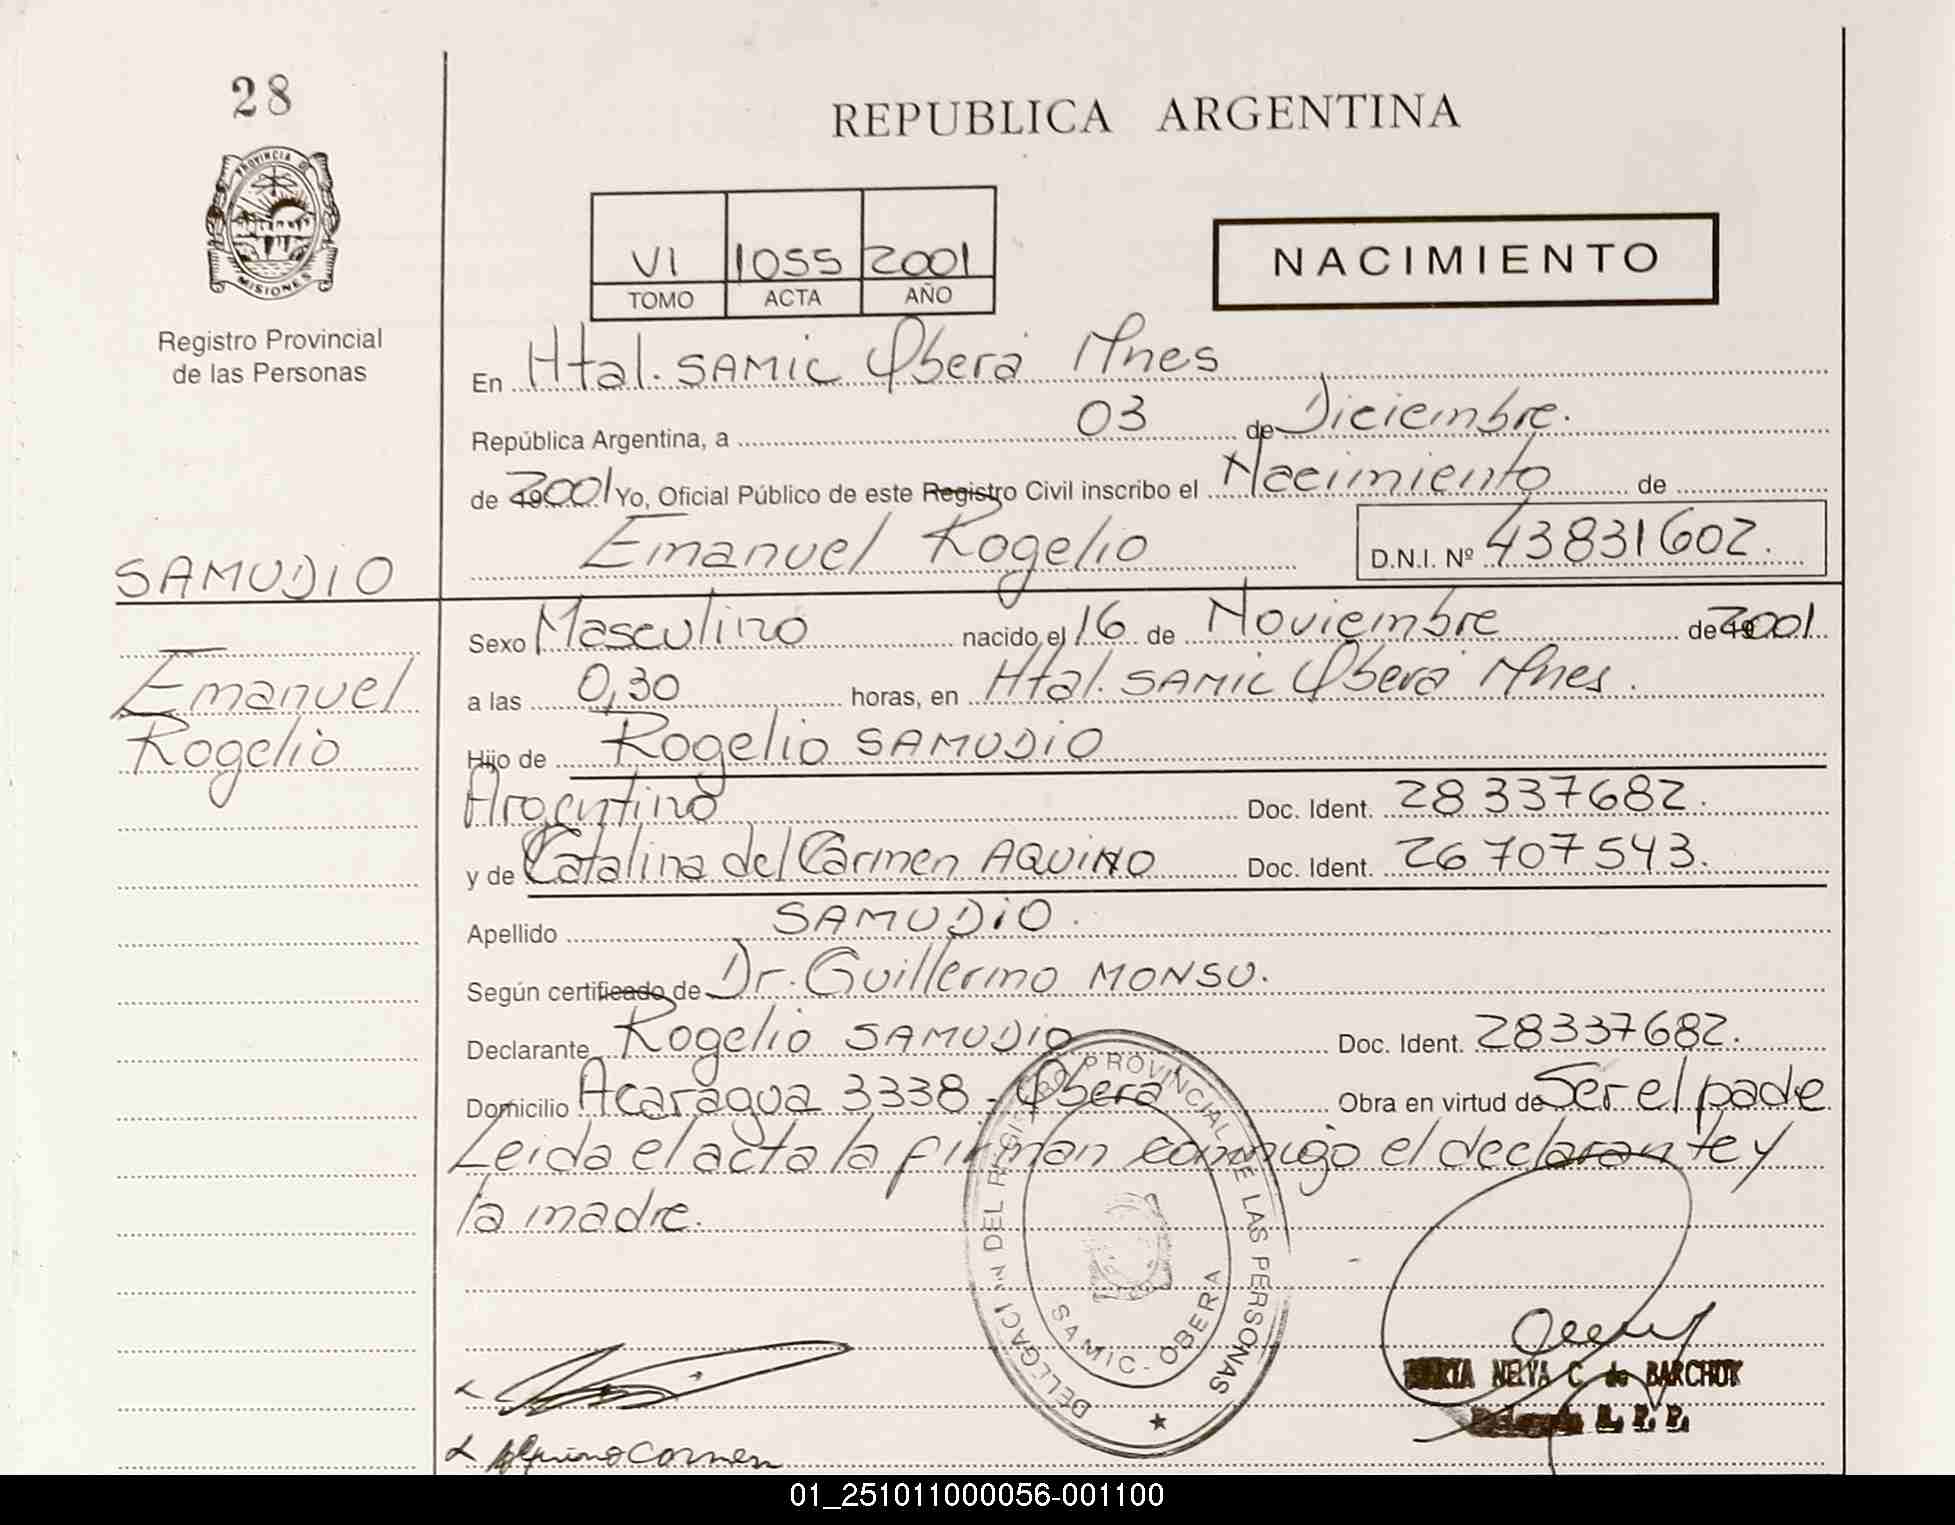 28
REPUBLICA ARGENTINA
PROVINCIA D
MISIONES
Registro Provincial
de las Personas
VI 1055 2001
TOMO ACTA AÑO
NACIMIENTO
En Htal. SAMIC Oberá Mnes
República Argentina, a 03 de Diciembre.
de 2001 Yo, Oficial Público de este Registro Civil inscribo el Nacimiento de
Emanuel Rogelio D.N.I. Nº 43831602.
SAMUDIO
Emanuel
Rogelio
Sexo Masculino nacido el 16 de Noviembre de 2001
a las 0,30 horas, en Htal. SAMIC Oberá Mnes.
Hijo de Rogelio SAMUDIO
Argentino Doc. Ident. 28337682.
y de Catalina del Carmen AQUINO Doc. Ident. 26707543.
Apellido SAMUDIO.
Según certificado de Dr. Guillermo MONSU.
Declarante Rogelio SAMUDIO Doc. Ident. 28337682.
Domicilio Acaragua 3338 - Oberá Obra en virtud de Ser el padre
Leida el acta la firman conmigo el declarante y
la madre.
DELEGACION DEL REGISTRO PROVINCIAL DE LAS PERSONAS
SAMIC - OBERA
MARIA NELVA C. de BARCHUK
Delegada R. P. P.
Aquino Carmen
01_251011000056-001100